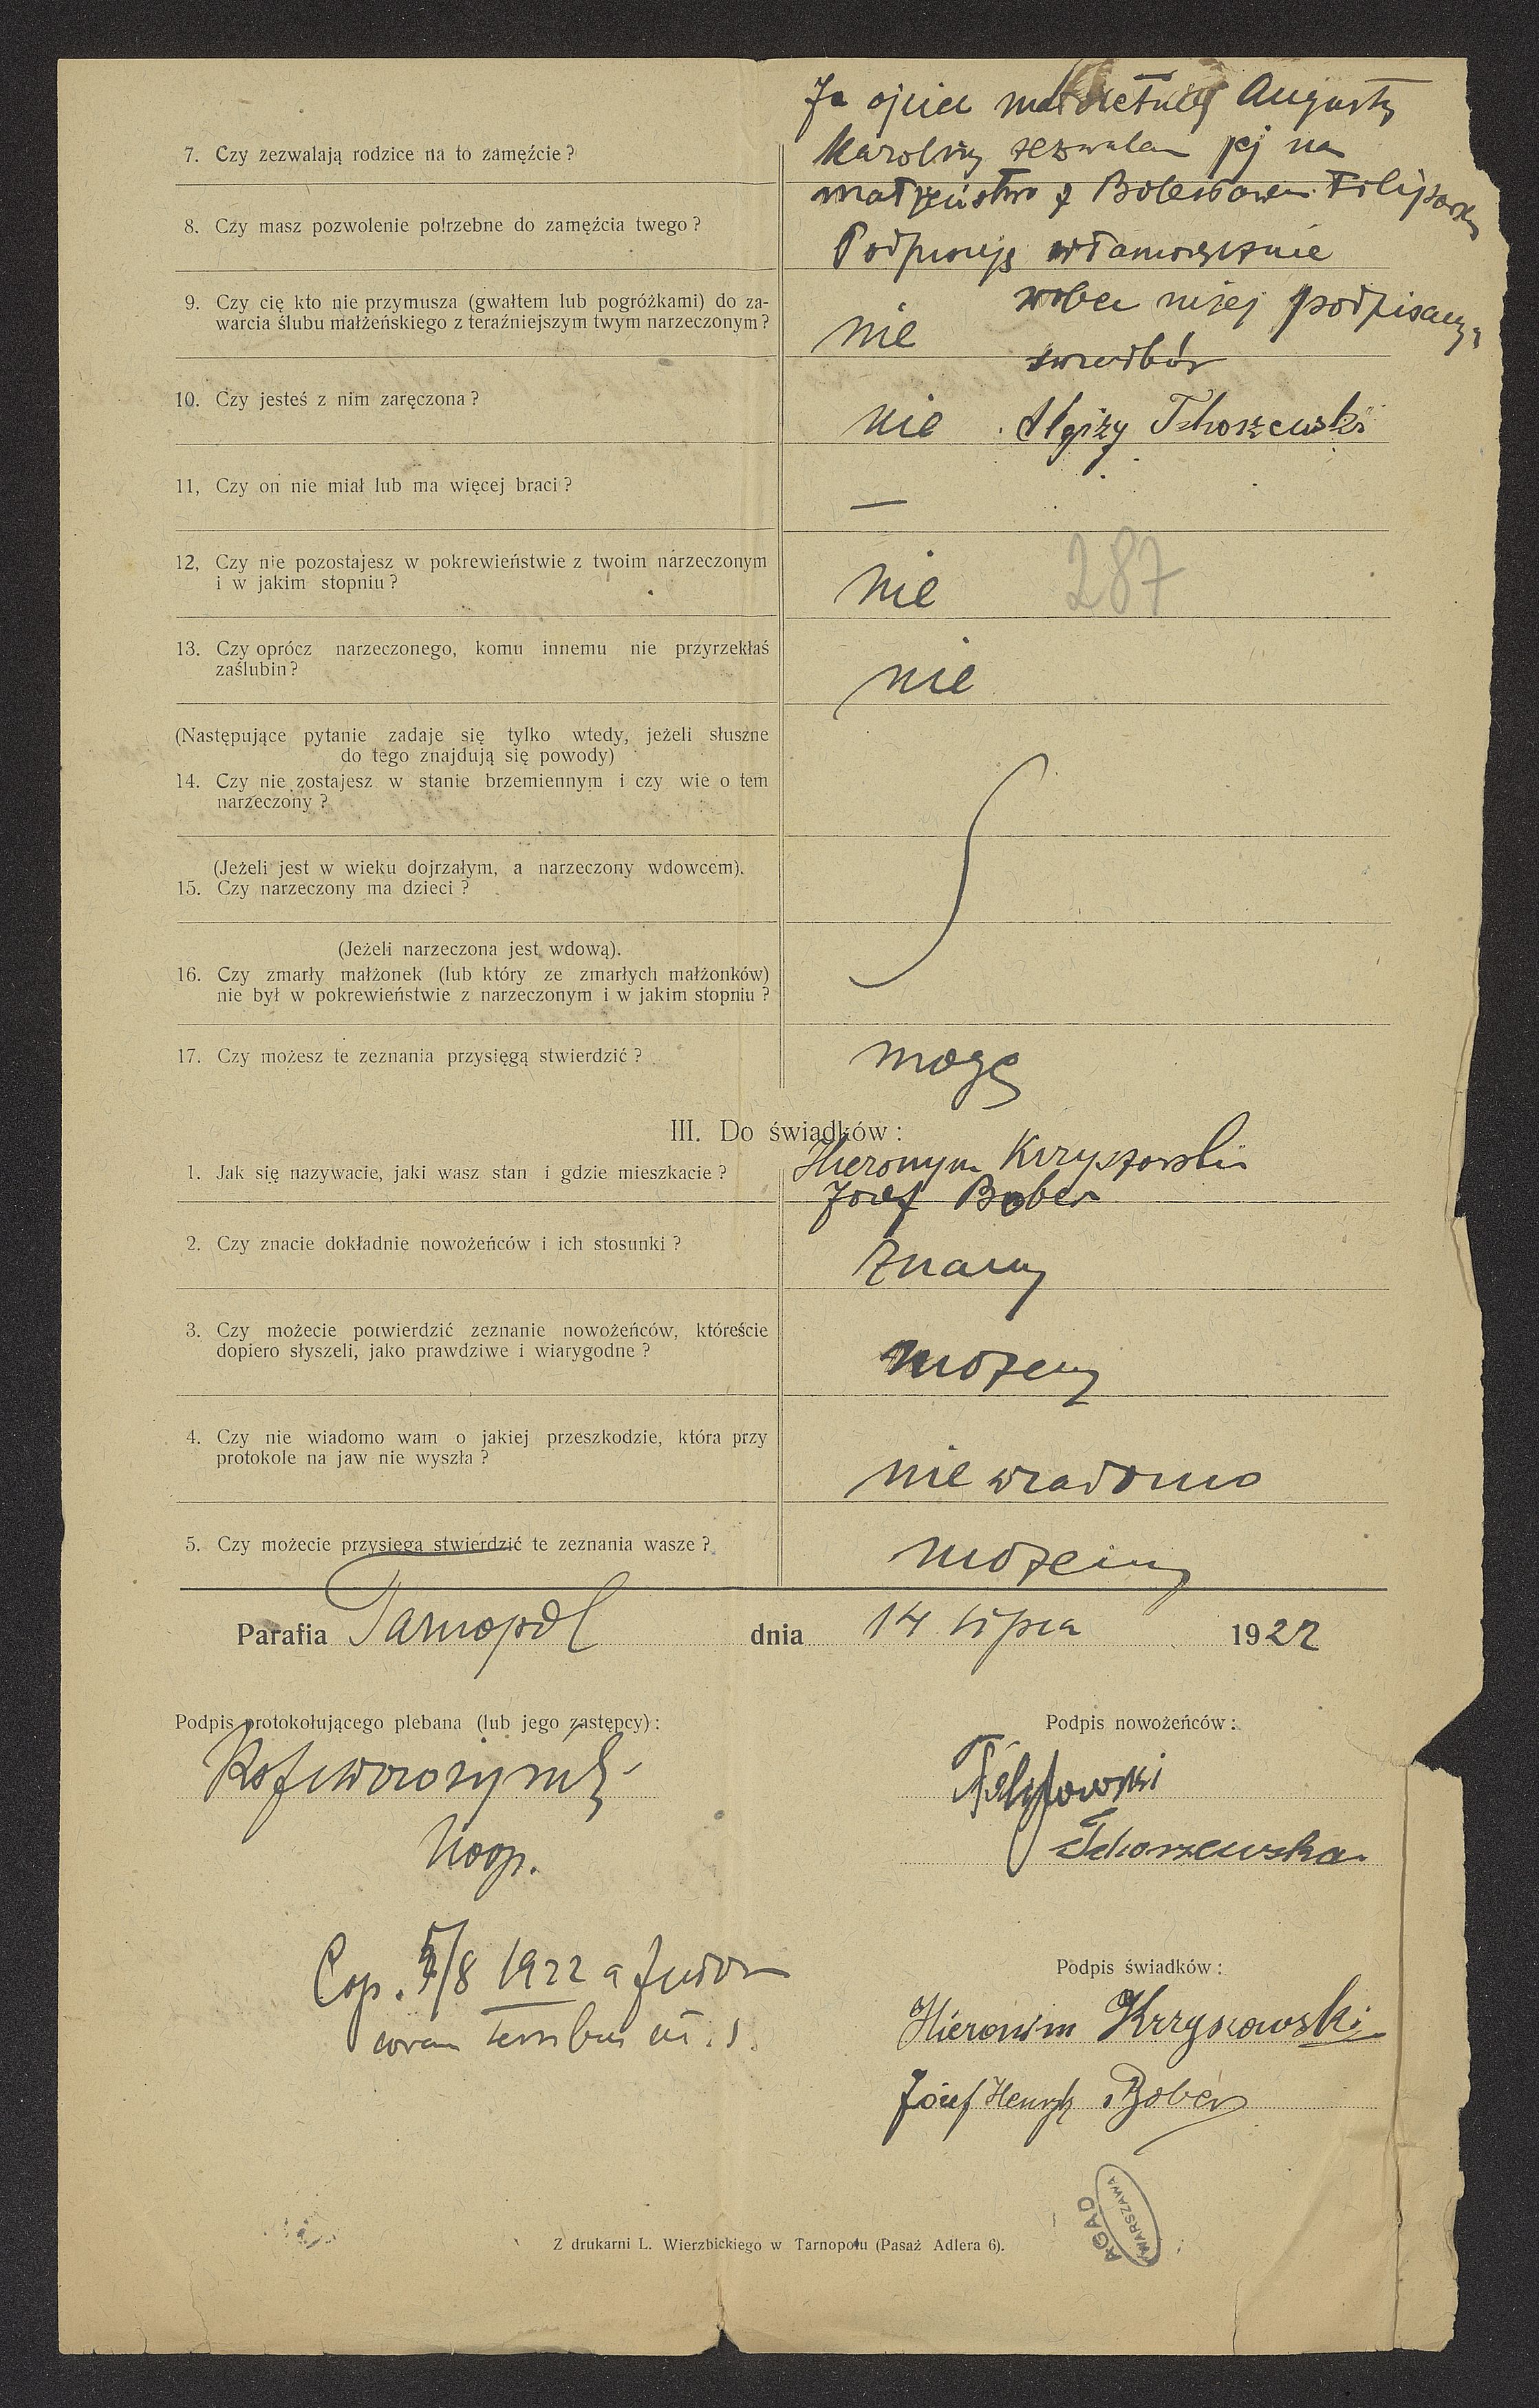 Ja ojciec małoletniej Augusty
Karoliny zezwalam jej na
7. Czy zezwalają rodzice na to zamęźcie?
małżeństwo z Bolesławem Filipowskim
8. Czy masz pozwolenie potrzebne do zamęźcia twego?
Podpisuję własnoręcznie
9. Czy cię kto nie przymusza (gwałtem lub pogróżkami) do za-
warcia ślubu małżeńskiego z teraźniejszym twym narzeczonym?
nie
wobec niżej podpisanych
10. Czy jesteś z nim zaręczona?
nie
Tchorzewski
11, Czy on nie miał lub ma więcej braci?
—
12, Czy nie pozostajesz w pokrewieństwie z twoim narzeczonym
i w jakim stopniu?
nie
287
13. Czy oprócz narzeczonego, komu innemu nie przyrzekłaś
zaślubin?
nie
(Następujące pytanie zadaje się tylko wtedy, jeżeli słuszne
do tego znajdują się powody)
14. Czy nie zostajesz w stanie brzemiennym i czy wie o tem
narzeczony?
(Jeżeli jest w wieku dojrzałym, a narzeczony wdowcem).
15. Czy narzeczony ma dzieci?
(Jeżeli narzeczona jest wdową).
16. Czy zmarły małżonek (lub który ze zmarłych małżonków)
nie był w pokrewieństwie z narzeczonym i w jakim stopniu?
17. Czy możesz te zeznania przysięgą stwierdzić?
mogę
III. Do świadków:
1. Jak się nazywacie, jaki wasz stan i gdzie mieszkacie?
Hieronym Krzyszowski
Józef Bober
2. Czy znacie dokładnie nowożeńców i ich stosunki?
znamy
3. Czy możecie potwierdzić zeznanie nowożeńców, któreście
dopiero słyszeli, jako prawdziwe i wiarygodne?
możemy
4. Czy nie wiadomo wam o jakiej przeszkodzie, która przy
protokole na jaw nie wyszła?
nie wiadomo
5. Czy możecie przysięgą stwierdzić te zeznania wasze?
możemy
Parafia Tarnopol dnia 14 lipca 1922
Podpis protokołującego plebana (lub jego zastępcy):
Podpis nowożeńców:
Filipowski
Koop.
Tchorzewska
Cop. 5/8 1922 a
coram testibus ut. s.
Podpis świadków:
Hieronim Krzyszowski
Józef Henryk Bober
AGAD
WARSZAWA
Z drukarni L. Wierzbickiego w Tarnopolu (Pasaż Adlera 6).